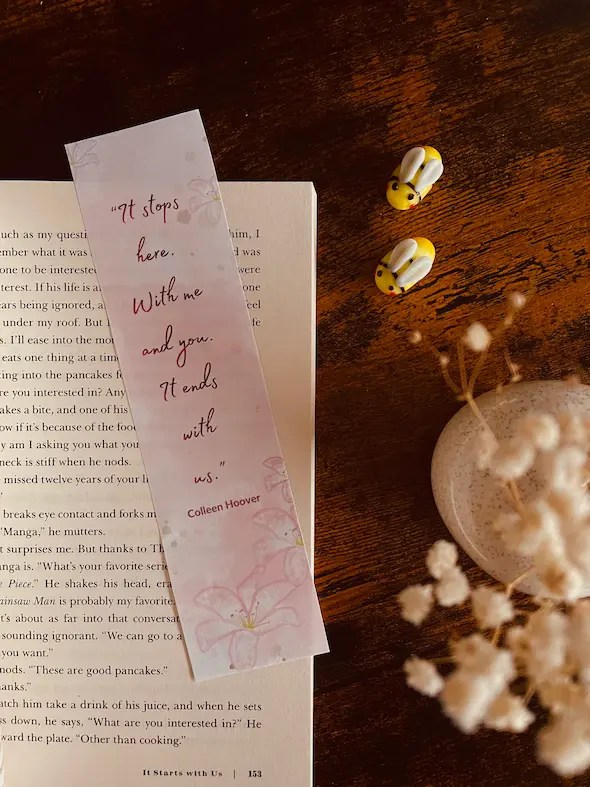 "It stops
here.
With me
and you.
It ends
with
us."
Colleen Hoover
uch as my questi him, I
ember what it was d was
one to be interested were
terest. If his life is a one
ears being ignored, a feel
under my roof. But fe
s. I'll ease into the mo
eats one thing at a time
ing into the pancakes fo
re you interested in? Any
akes a bite, and one of his
ow if it's because of the food
y am I asking you what you
neck is stiff when he nods.
missed twelve years of your li
breaks eye contact and forks m
"Manga," he mutters.
t surprises me. But thanks to Th
anga is. "What's your favorite serie
e Piece." He shakes his head, era
ainsaw Man is probably my favorite.
t's about as far into that conversat
sounding ignorant. "We can go to a
you want."
nods. "These are good pancakes."
anks."
atch him take a drink of his juice, and when he sets
ss down, he says, "What are you interested in?" He
ward the plate. "Other than cooking."
It Starts with Us | 153